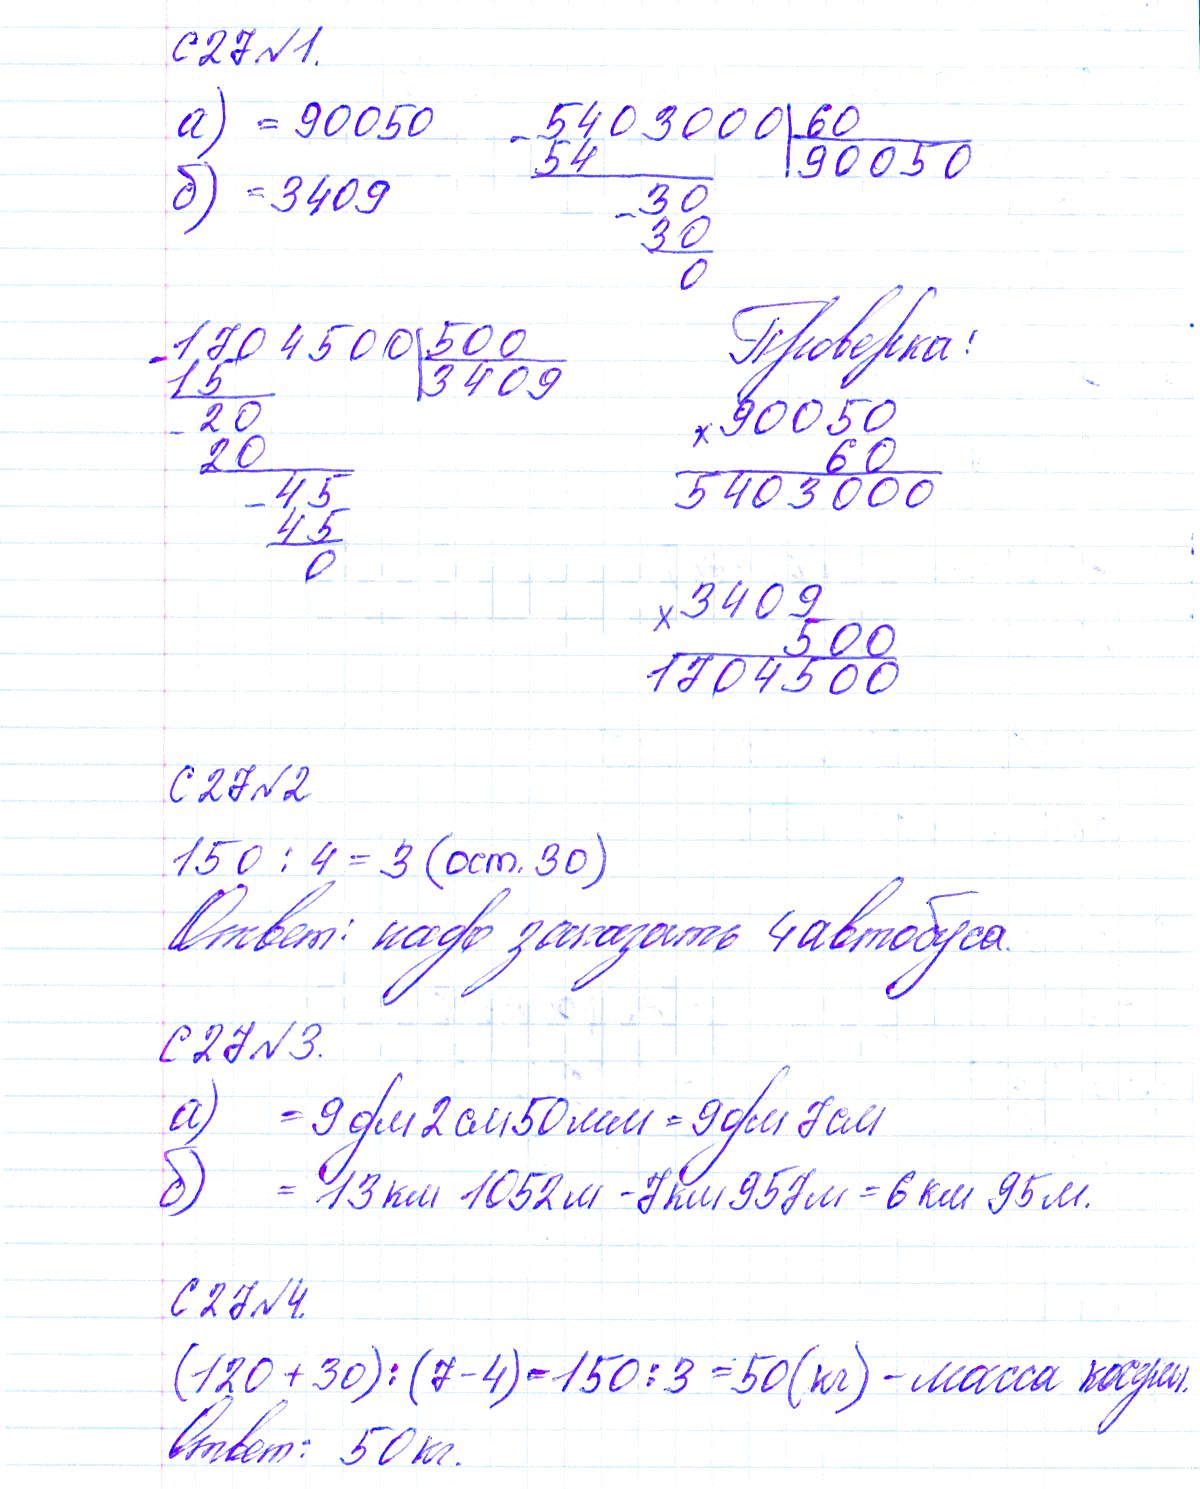 С27№1.
а) = 90050
б) = 3409
- 5403000 | 60
54
90050
- 30
30
0
- 1704500 | 500
15
3409
- 20
20
- 45
45
0
Проверка:
× 90050
60
5403000
× 3409
500
1704500
С27№2
150 : 4 = 3 (ост. 30)
Ответ: надо заказать 4 автобуса.
С27№3.
а) = 9дм 2см 50мм = 9дм 7см
б) = 13км 1052м - 7км 957м = 6км 95м.
С27№4.
(120 + 30) : (7 - 4) = 150 : 3 = 50 (кг) - масса
Ответ: 50кг.